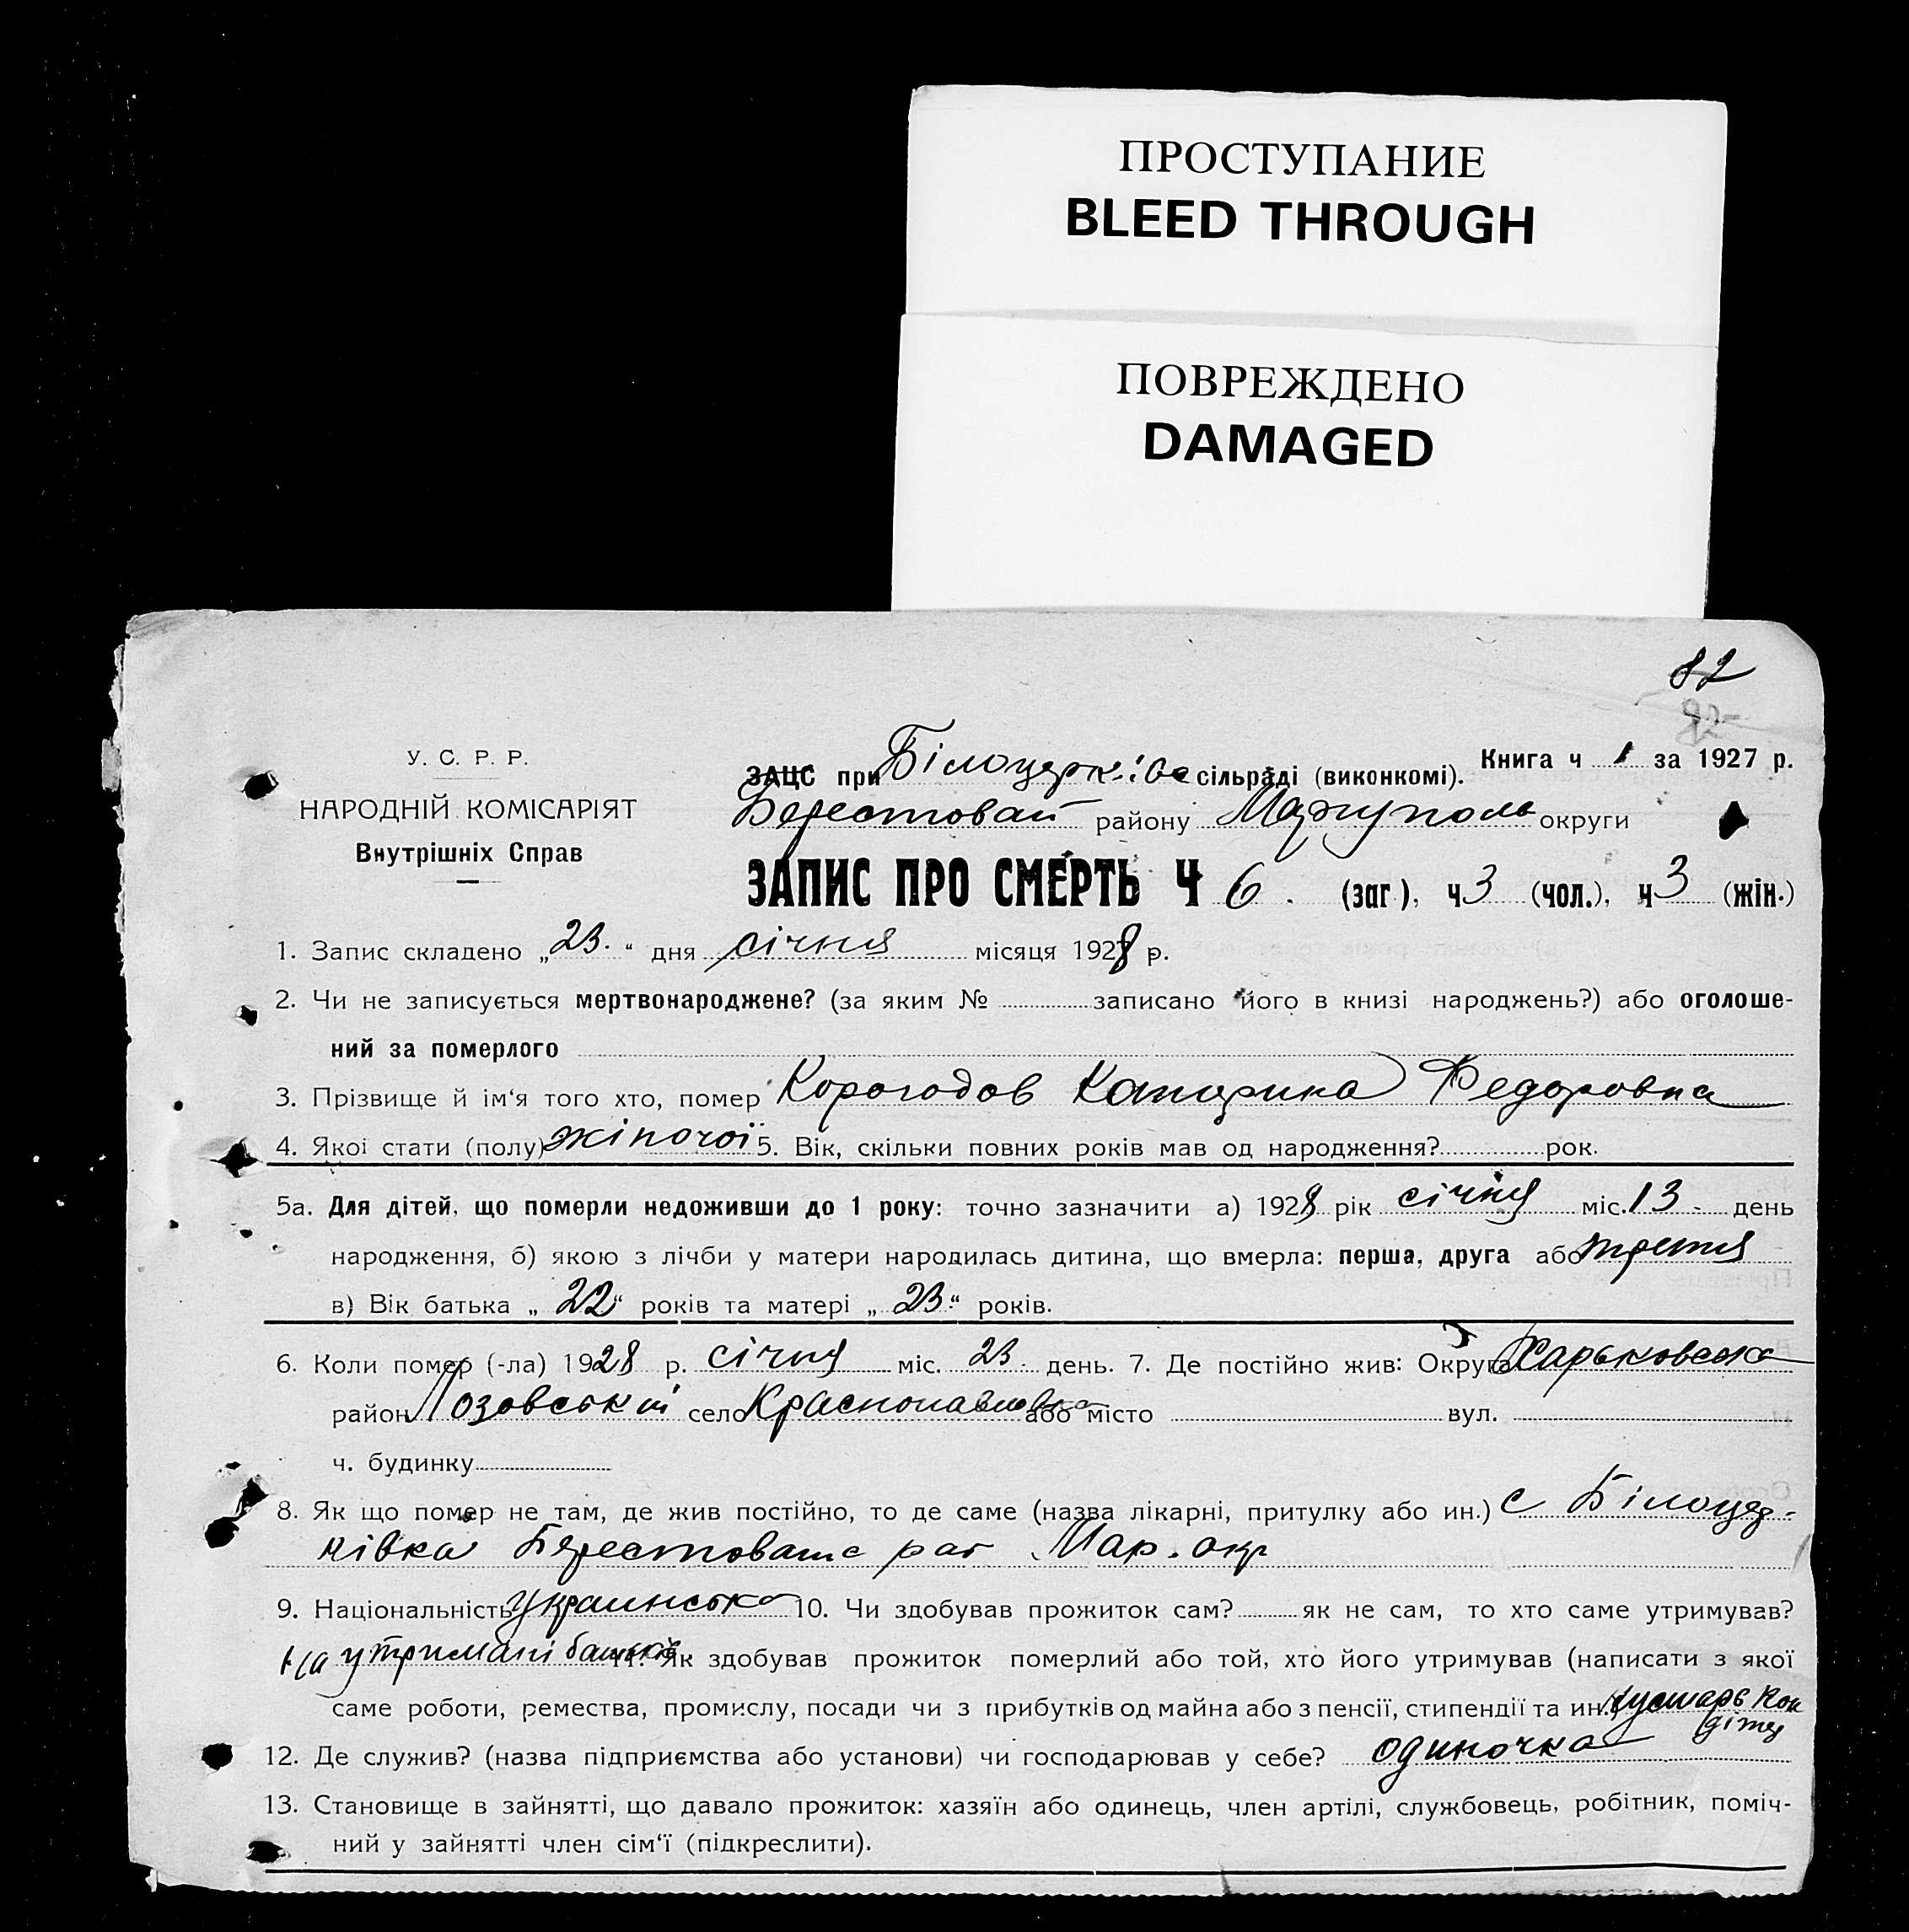 ПРОСТУПАНИЕ
BLEED THROUGH
ПОВРЕЖДЕНО
DAMAGED
82
У. С. Р. Р.
НАРОДНІЙ КОМІСАРІЯТ
Внутрішніх Справ
Книга ч 1 за 1927 р.
ЗАЦС при Білоцерківс сільраді (виконкомі).
Берестован району Маріуполь округи
ЗАПИС ПРО СМЕРТЬ Ч 6. (заг.), ч 3 (чол.), ч 3 (жін.)
1. Запис складено „23." дня січня місяця 1928 р.
2. Чи не записується мертвонароджене? (за яким № записано його в книзі народжень?) або оголоше-
ний за померлого
3. Прізвище й ім'я того хто, помер Корогодов Катерина Федоровна
4. Якої стати (полу) жіночої 5. Вік, скільки повних років мав од народження? рок.
5а. Для дітей, що померли недоживши до 1 року: точно зазначити а) 1928 рік січня міс. 13 день
народження, б) якою з лічби у матери народилась дитина, що вмерла: перша, друга або третя
в) Вік батька „22" років та матері „23" років.
6. Коли помер (-ла) 1928 р. січня міс. 23 день. 7. Де постійно жив: Округа Харьковска
район Лозовський село Краснопавловка або місто вул.
ч. будинку
8. Як що помер не там, де жив постійно, то де саме (назва лікарні, притулку або ин.) с Білоцер-
ківка Мар. окр
9. Національність Украинська 10. Чи здобував прожиток сам? як не сам, то хто саме утримував?
На утримані батьків 11. Як здобував прожиток померлий або той, хто його утримував (написати з якої
саме роботи, ремества, промислу, посади чи з прибутків од майна або з пенсії, стипендії та ин.) кустарь
12. Де служив? (назва підприємства або установи) чи господарював у себе? одиночка
13. Становище в зайнятті, що давало прожиток: хазяїн або одинець, член артілі, службовець, робітник, поміч-
ний у зайнятті член сім'ї (підкреслити).